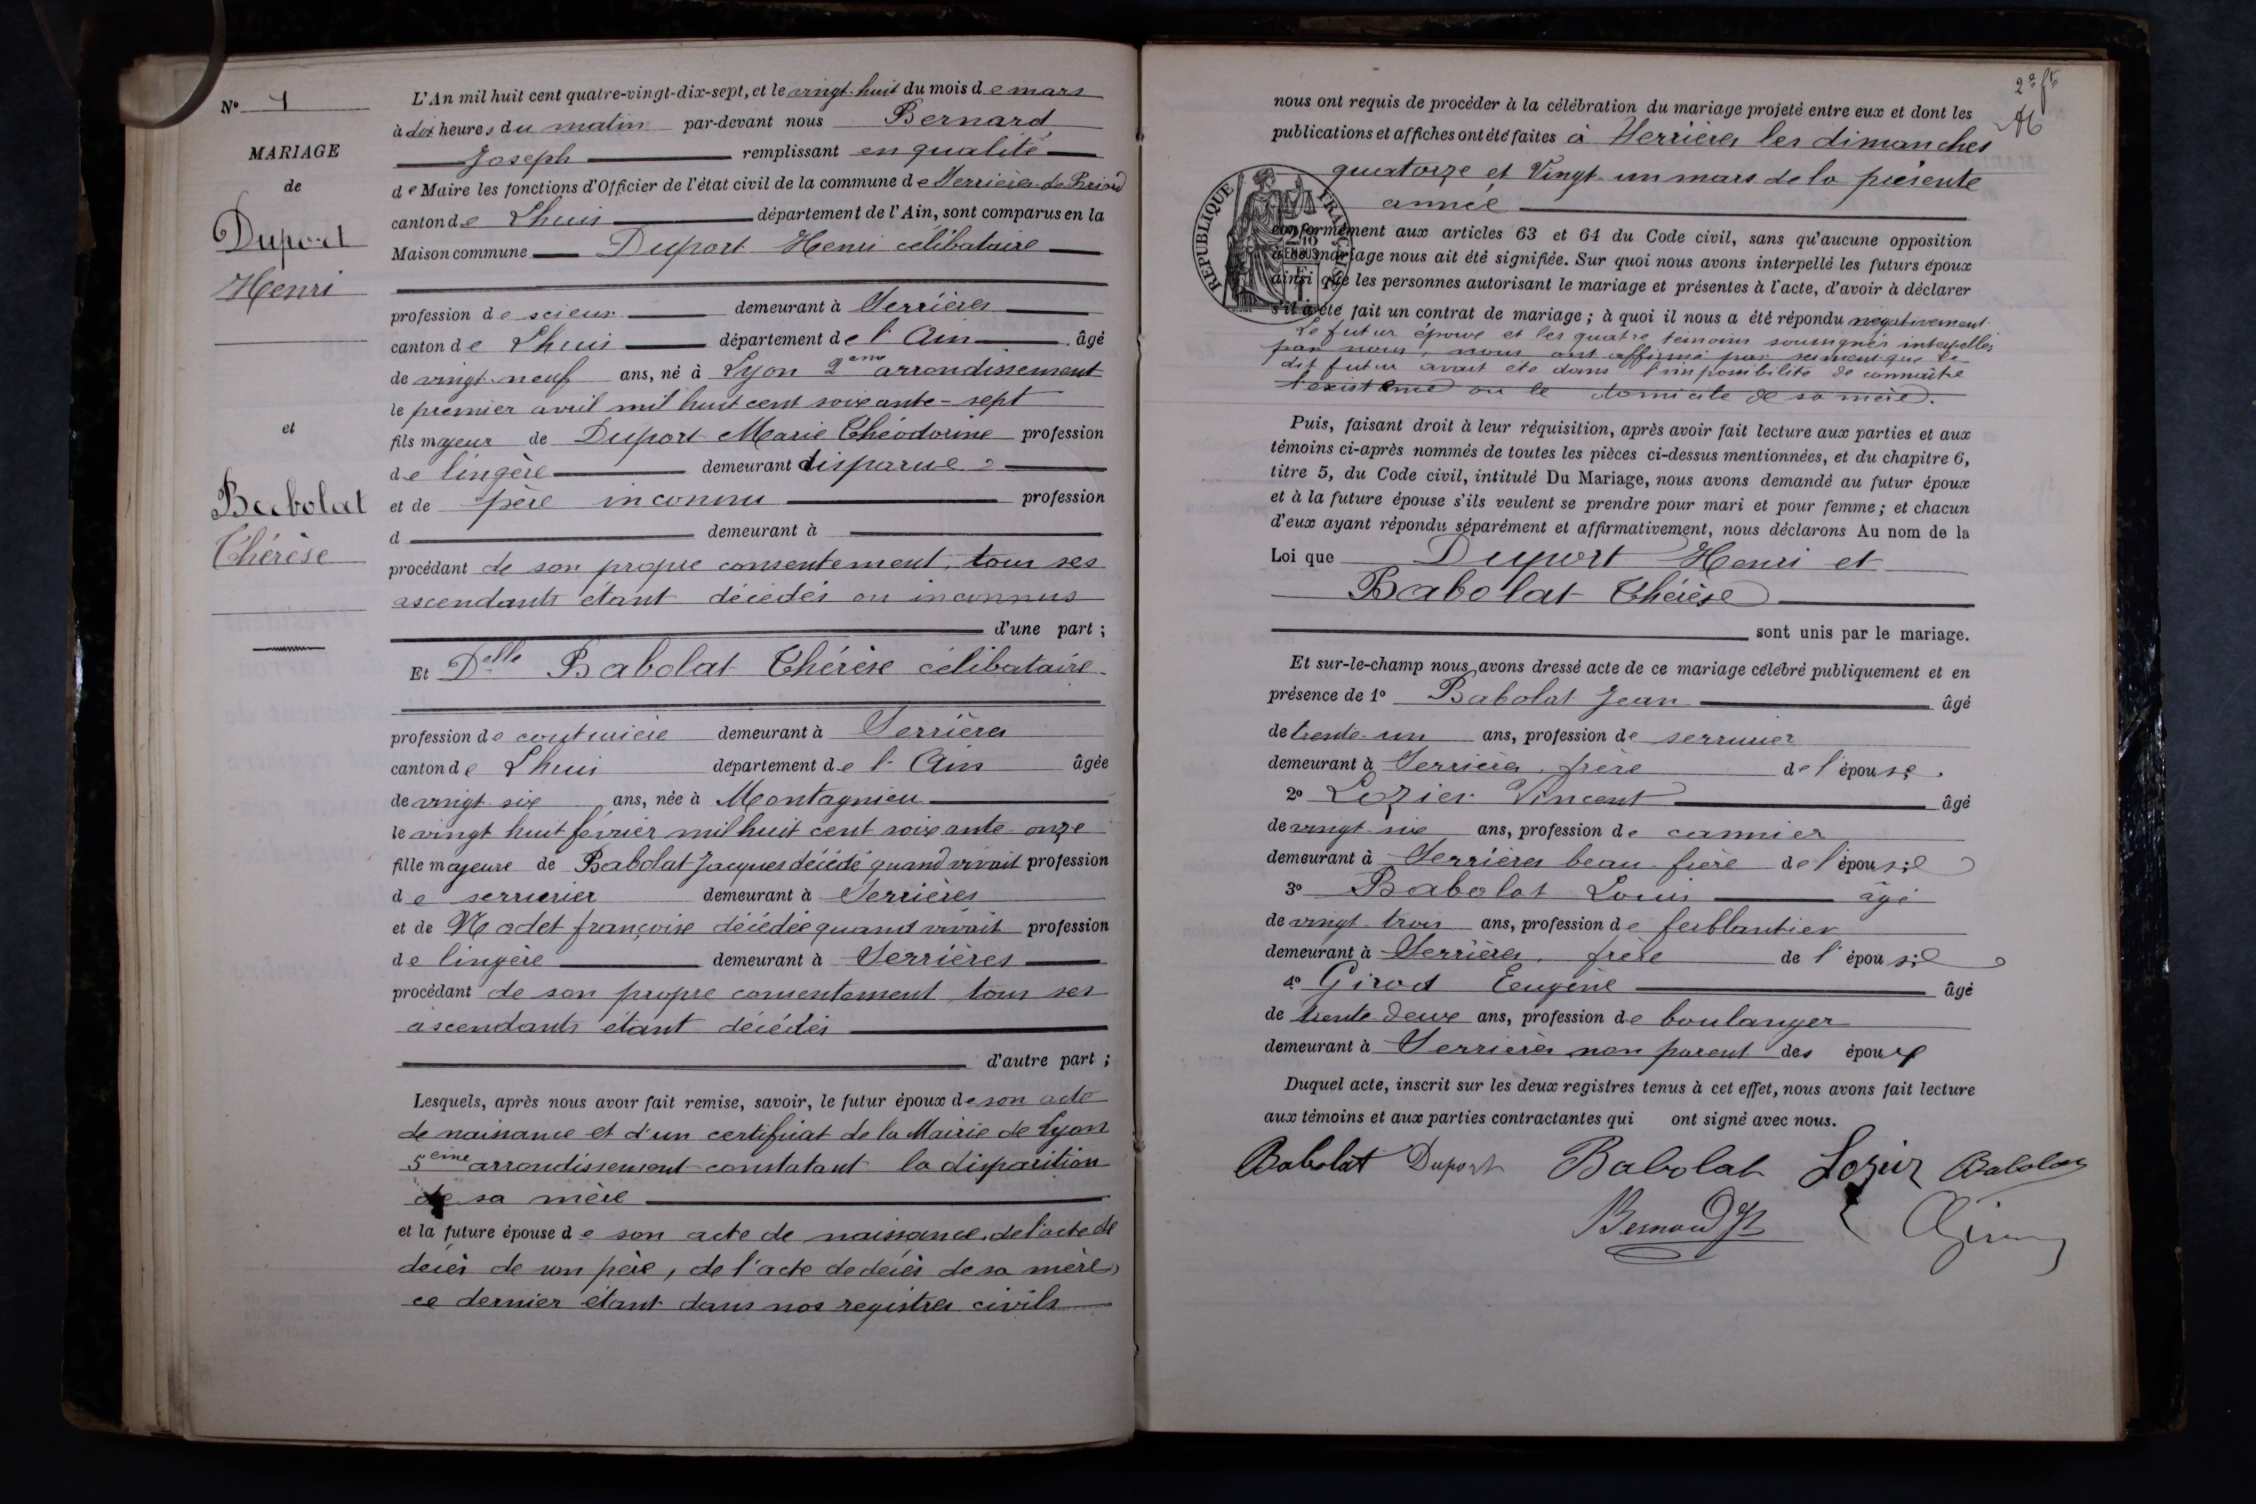 N° 1
MARIAGE
de
Duport
Henri
et
Babolat
Thérèse
L'An mil huit cent quatre-vingt-dix-sept, et le vingt-huit du mois de mars
à dix heures du matin par-devant nous Bernard
Joseph remplissant en qualité
de Maire les fonctions d'Officier de l'état civil de la commune de Serrières-de-Briord
canton de Lhuis département de l'Ain, sont comparus en la
Maison commune Duport Henri célibataire
profession de scieur demeurant à Serrières
canton de Lhuis département de l'Ain âgé
de vingt-neuf ans, né à Lyon 2eme arrondissement
le premier avril mil huit cent soixante-sept
fils majeur de Duport Marie Théodorine profession
de lingère demeurant disparue
et de père inconnu profession
d demeurant à
procédant de son propre consentement, tous ses
ascendants étant décédés ou inconnus
d'une part ;
Et Delle Babolat Thérèse célibataire
profession de couturière demeurant à Serrières
canton de Lhuis département de l'Ain âgée
de vingt six ans, née à Montagnieu
le vingt huit février mil huit cent soixante onze
fille majeure de Babolat Jacques décédé quand vivait profession
de serrurier demeurant à Serrières
et de Nodet françoise décédée quand vivait profession
de lingère demeurant à Serrières
procédant de son propre consentement tous ses
ascendants étant décédés
d'autre part ;
Lesquels, après nous avoir fait remise, savoir, le futur époux de son acte
de naissance et d'un certificat de la Mairie de Lyon
5eme arrondissement constatant la disparition
de sa mère
et la future épouse de son acte de naissance, de l'acte de
décès de son père, de l'acte de décès de sa mère,
ce dernier étant dans nos registres civils
nous ont requis de procéder à la célébration du mariage projeté entre eux et dont les
publications et affiches ont été faites à Serrières les dimanches
quatorze et Vingt-un mars de la présente
année
RÉPUBLIQUE FRANÇAISE
conformément aux articles 63 et 64 du Code civil, sans qu'aucune opposition
à ce mariage nous ait été signifiée. Sur quoi nous avons interpellé les futurs époux
ainsi que les personnes autorisant le mariage et présentes à l'acte, d'avoir à déclarer
s'il a été fait un contrat de mariage ; à quoi il nous a été répondu négativement.
Le futur époux et les quatre témoins soussignés interpellés
par nous, nous ont affirmé par serment que le
dit futur avait été dans l'impossibilité de connaître
l'existence ou le domicile de sa mère.
Puis, faisant droit à leur réquisition, après avoir fait lecture aux parties et aux
témoins ci-après nommés de toutes les pièces ci-dessus mentionnées, et du chapitre 6,
titre 5, du Code civil, intitulé Du Mariage, nous avons demandé au futur époux
et à la future épouse s'ils veulent se prendre pour mari et pour femme ; et chacun
d'eux ayant répondu séparément et affirmativement, nous déclarons Au nom de la
Loi que Duport Henri et
Babolat Thérèse
sont unis par le mariage.
Et sur-le-champ nous avons dressé acte de ce mariage célébré publiquement et en
présence de 1° Babolat Jean âgé
de trente-un ans, profession de serrurier
demeurant à Serrières, frère de l'épouse.
2° Lozier Vincent âgé
de vingt-six ans, profession de cannier
demeurant à Serrières beau-frère de l'épouse
3° Babolat Louis âgé
de vingt-trois ans, profession de ferblantier
demeurant à Serrières, frère de l'épouse
4° Girod Eugène âgé
de trente-deux ans, profession de boulanger
demeurant à Serrières non parent des époux
Duquel acte, inscrit sur les deux registres tenus à cet effet, nous avons fait lecture
aux témoins et aux parties contractantes qui ont signé avec nous.
Babolat Duport Babolat Lozier Babolat
Bernard Jh